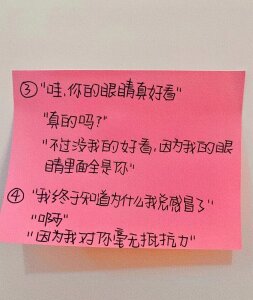 ③"哇,你的眼睛真好看"
"真的吗?"
"不过没我的好看,因为我的眼
睛里面全是你"
④"我终于知道为什么我总感冒了"
"啊?"
"因为我对你毫无抵抗力"